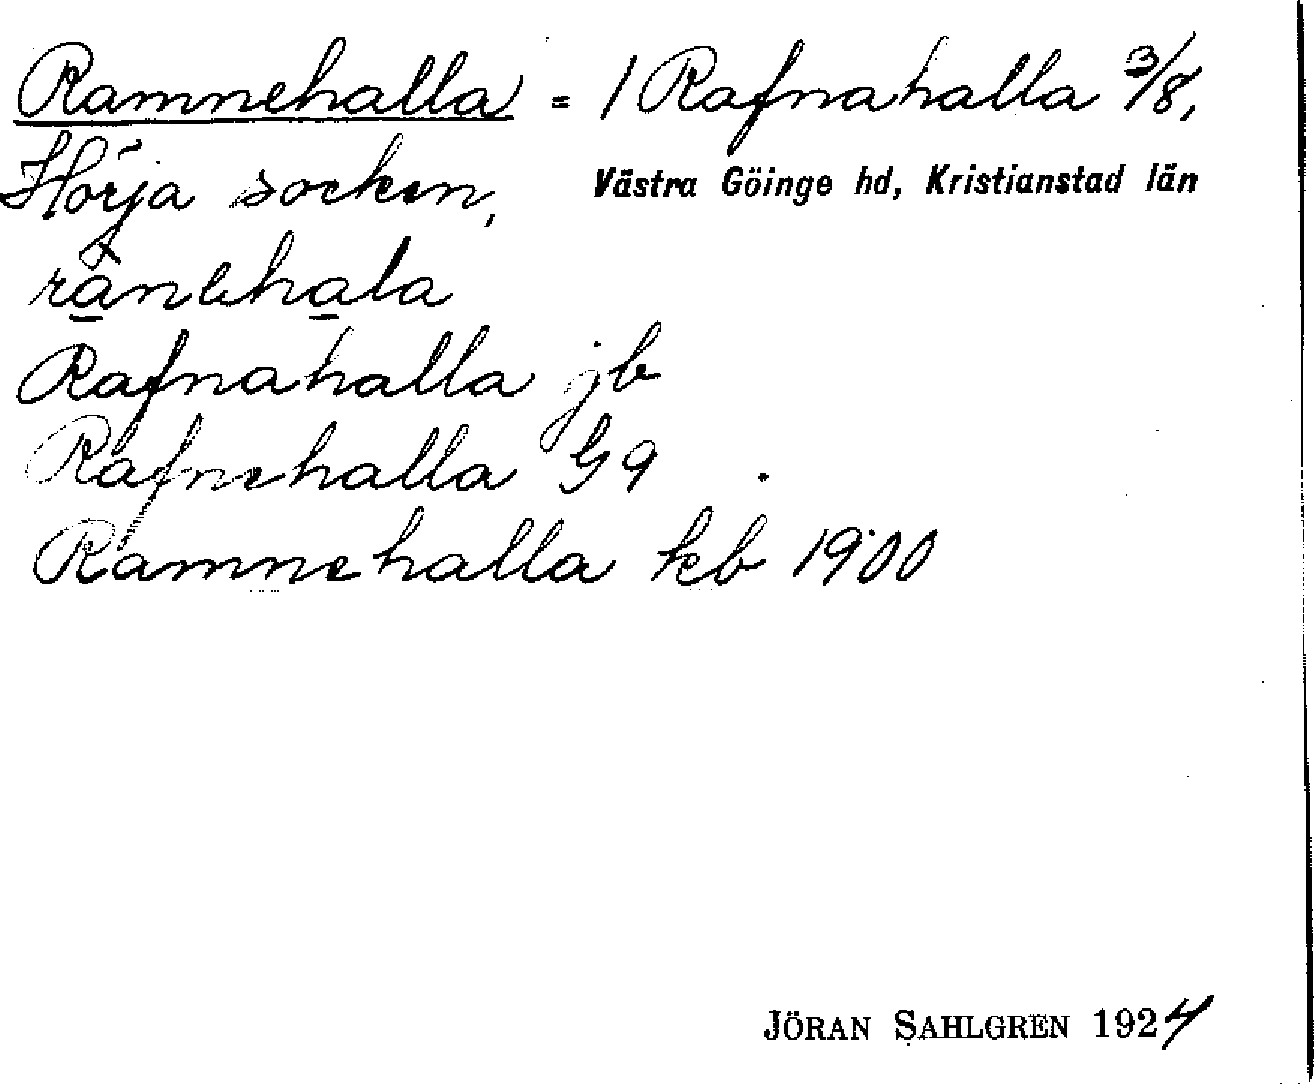 Ramnehalla = 1 Rafnahalla 3/8,
Hörja socken, Västra Göinge hd, Kristianstad län
Rafnahalla jb
Rafnehalla G9
Ramnehalla kb 1900
JÖRAN SAHLGREN 1924